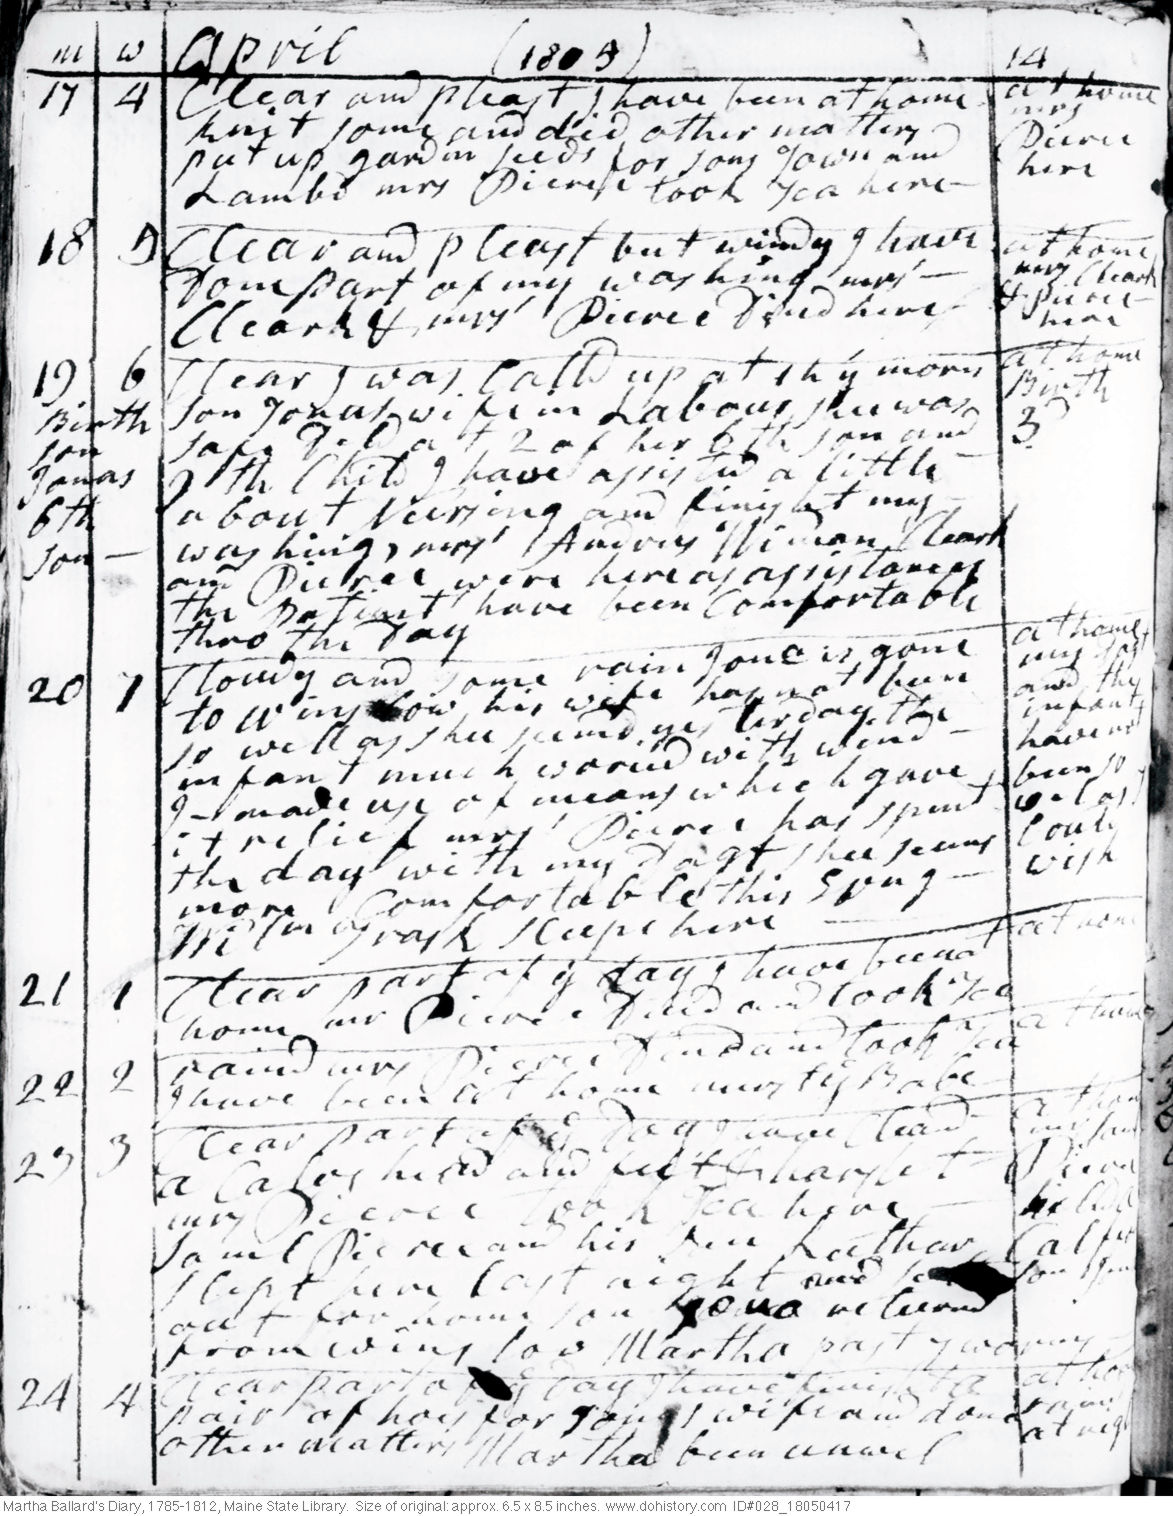 m w April (1805) 14
17 4 Clear and pleast I have been at home at home
knit some and did other matters mrs
put up gardin seeds for sons Town and Pierce
Lambd mrs Pierce took Tea here — here
18 5 Clear and pleast but windy I have at home
Done Part of my washing mrs — mrs Cleark
Cleark & mrs Pierce Dined here & Pierce
here
19 6 Clear I was Calld up at 3 h y morn at home
Birth son Jonas wife in Labour shee was Birth
son safe Deld at 2 of her 6th son and 3d
Jonas 9th Child I have assisted a little
6th about Nursing and finisht my
son — washing, mrs Andrus Wiman Cleark
and Pierce were here as assistances
the Patient have been Comfortable
thro the Day
20 7 Cloudy and some rain Jonas is gone at home
to Winslow his wife has not been my
so well as shee seemd yesterday, the and the
infant much woried with wind — infant
I made use of means which gave have not
it relief mrs Pierce has spent been so
the day with my Dagt shee seems well as I
more Comfortable this Evng — Could
Wm Trask sleeps here — wish
21 1 Clear part of ye day I have been at at home
home mr Pierce Dined and took Tea
22 2 raind mrs Pierce Dined and took Tea at home
I have been at home nurst ye Babe
23 3 Clear part of ye Day I have Cleand at home
a Calvs head and feet & harslet
mrs Pierce took Tea here — Pierce
Saml Pierce and his son Luther
slept here last night and out for home son Jonas returnd
from Winslow Martha
24 4 Clear part of ye Day I have finisht a at home
pair of hois for Jonas wife and done rains
other matters Martha been unwel at night
Martha Ballard's Diary, 1785-1812, Maine State Library. Size of original: approx. 6.5 x 8.5 inches. www.dohistory.com ID#028_18050417